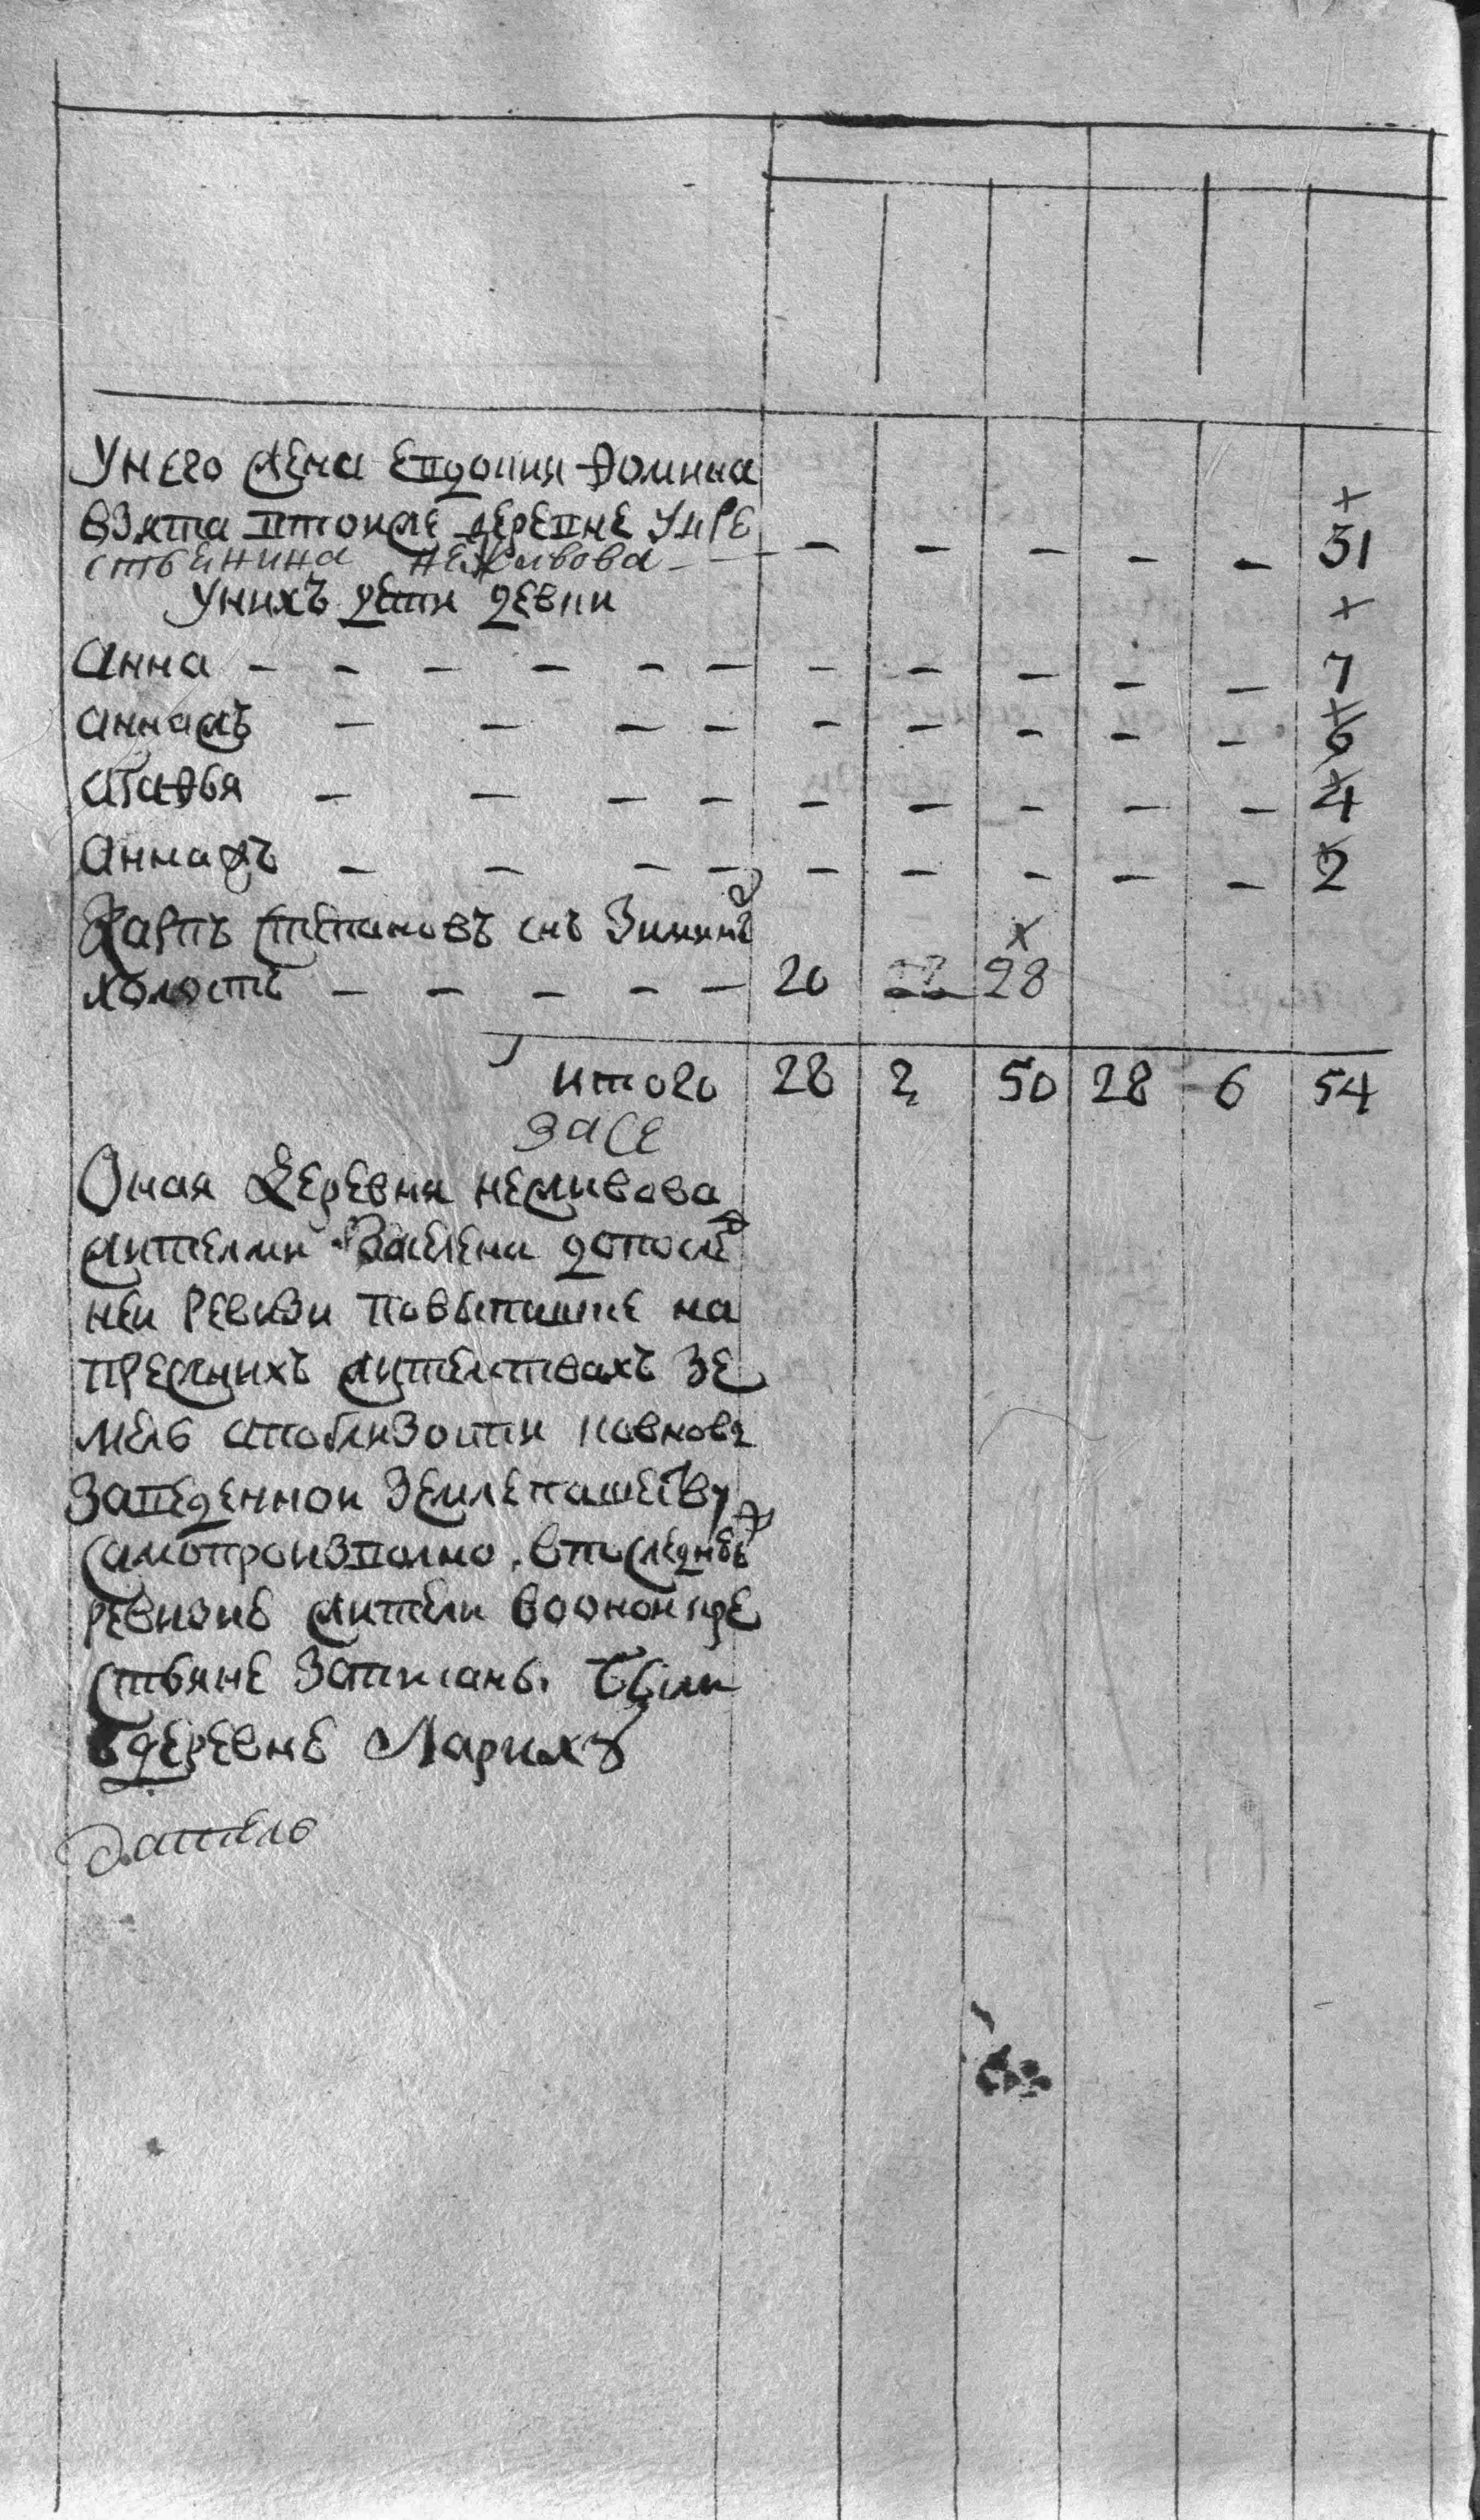 У него жена Евдокия Фомина
взята втойже деревне у кре
стьянина Неживова — — — — — — 31
У нихъ дети девки
Анна — — — — — — — — — — — 7
Аннажъ — — — — — — — — — 6
Агафья — — — — — — — — — 4
Аннажъ — — — — — — — — — 2
Карпъ Степановъ снъ Зиминъ
холостъ — — — — — 20 28
итого 28 2 50 28 6 54
Оная Деревня неживова
жителми Заселена допослѣд
неи Ревизи повыпашке на
прежнихъ жителствахъ зе
мель
заведеннои землепашеству
самопроизволно, впоследнѣй
ревизие жители воонои кре
стьяне записаны были
вдеревне Лариху